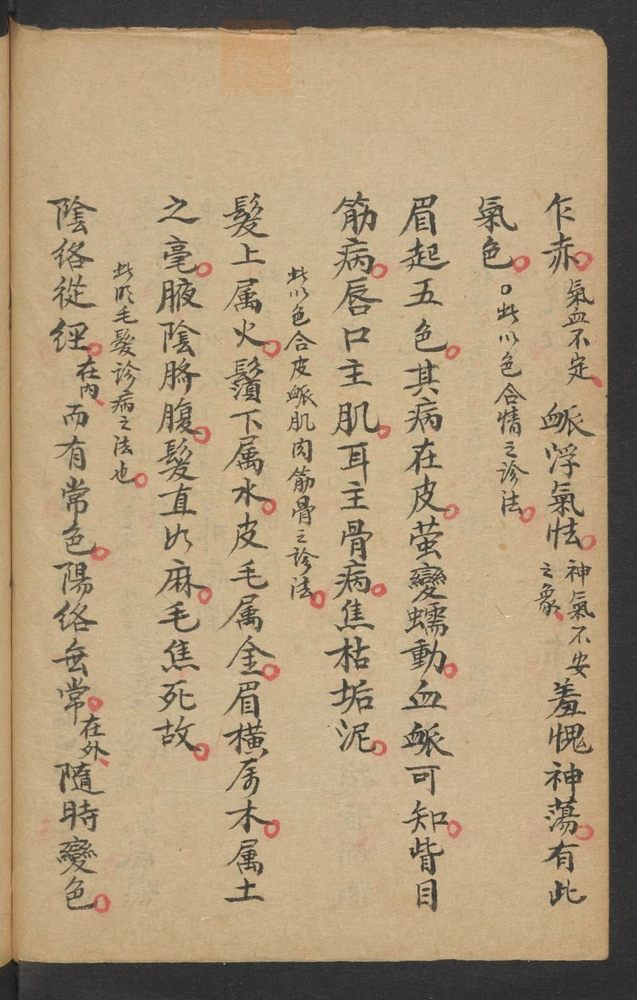 乍赤。氣血不定、衇浮氣怯。神氣不安之象、羞愧神蕩。有此
氣色。○此以色合情之診法。
眉起五色。其病在皮。萤變蠕動。血衇可知。眥目
筋病。唇口主肌。耳主骨病。焦枯垢泥。
此以色合皮衇肌肉筋骨之診法。
髮上属火。鬚下属水。皮毛属金。眉橫属木。属土
之毫。腋陰臍腹。髮直如麻。毛焦死故。
此昕毛髮診病之法也。
陰络從經。在内、而有常色。陽络無常。在外、隨時變色。